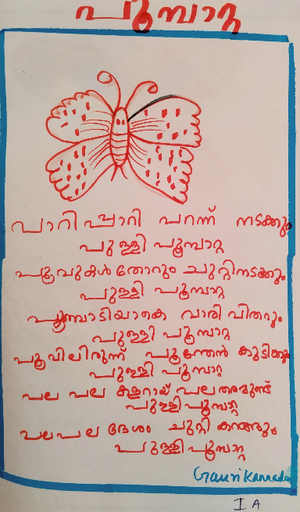 പൂമ്പാറ്റ
പാറിപ്പാറി പറന്ന് നടക്കും
പുള്ളി പൂമ്പാറ്റ
പൂവുകൾതോറും ചുറ്റിനടക്കും
പുള്ളി പൂമ്പാറ്റ
പൂമ്പൊടിയാകെ വാരി വിതറും
പുള്ളി പൂമ്പാറ്റ
പൂവിലിരുന്ന് പൂന്തേൻ കുടിക്കും
പുള്ളി പൂമ്പാറ്റ
പല പല കളറായ് പലതരമുണ്ട്
പുള്ളിപൂമ്പാറ്റ
പലപല ദേശം ചുറ്റി കറങ്ങും
പുള്ളിപൂമ്പാറ്റ
Gauri Kannadan
I A